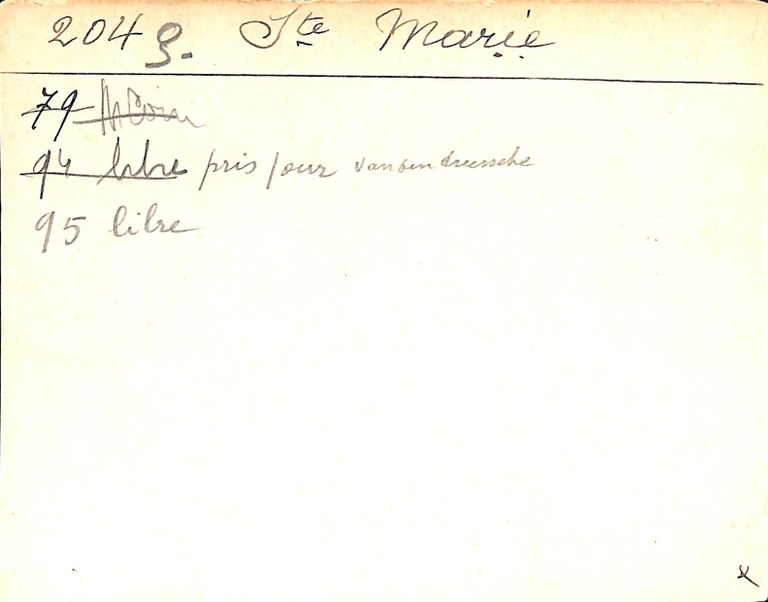 204 g. Ste Marie
79
94 libre pris pour vandendriessche
95 libre
x